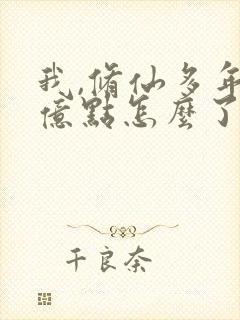 我,脩仙多年
億點怎麼了
千良奈